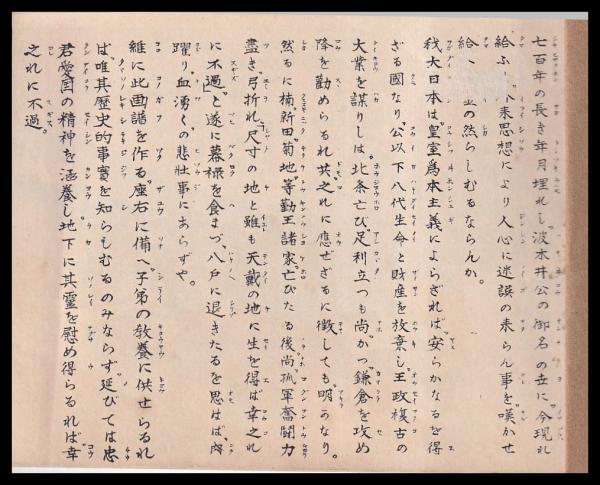 七百年の長き年月埋れし波木井公の御名の世に今現れ
給ふ 外来思想により人心に迷誤の来らん事を嘆かせ
給へ 霊の然らしむるならんか。
我大日本は皇室為本主義によらざれば安らかなるを得
ざる國なり。公以下八代生命と財産を放棄し王政複古の
大業を謀りしは北条亡び足利立つも尚かつ鎌倉を攻め
降を勸められ共之れに應ぜざるに徴しても明らなり。
然るに楠新田菊地等勤王諸家亡びたる後尚孤軍奮闘力
盡き弓折れ尺寸の地と雖も天戴の地に生を得ば幸之れ
に不過と遂に幕禄を食まづ八戸に退きたるを思はば肉
躍り血湧くの悲壮事にあらずや。
維に此画譜を作る座右に備へ子弟の敎養に供せらるれ
ば唯其歴史的事實を知らしむるのみならず延びては忠
君愛国の精神を涵養し地下に其霊を慰め得らるれば幸
之れに不過。